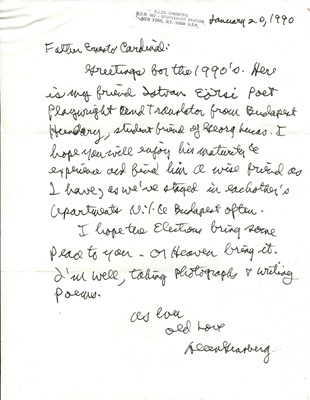 ALLEN GINSBERG
P.O.B. 582 - STUYVESANT STATION
NEW YORK, N.Y. 10009 U.S.A.
January 20, 1990
Father Ernesto Cardinal:
Greetings for the 1990's. Here
is my friend Istvan Eörsi Poet
Playwright and Translator from Budapest
Hungary, student friend of Georg Lucas. I
hope you will enjoy his maturity &
experience and find him a wise friend as
I have, as we've stayed in each other's
apartments N.Y. & Budapest often.
I hope the Elections bring some
peace to you - or Heaven bring it.
I'm well, taking Photographs & writing
Poems.
As ever
old Love
Allen Ginsberg